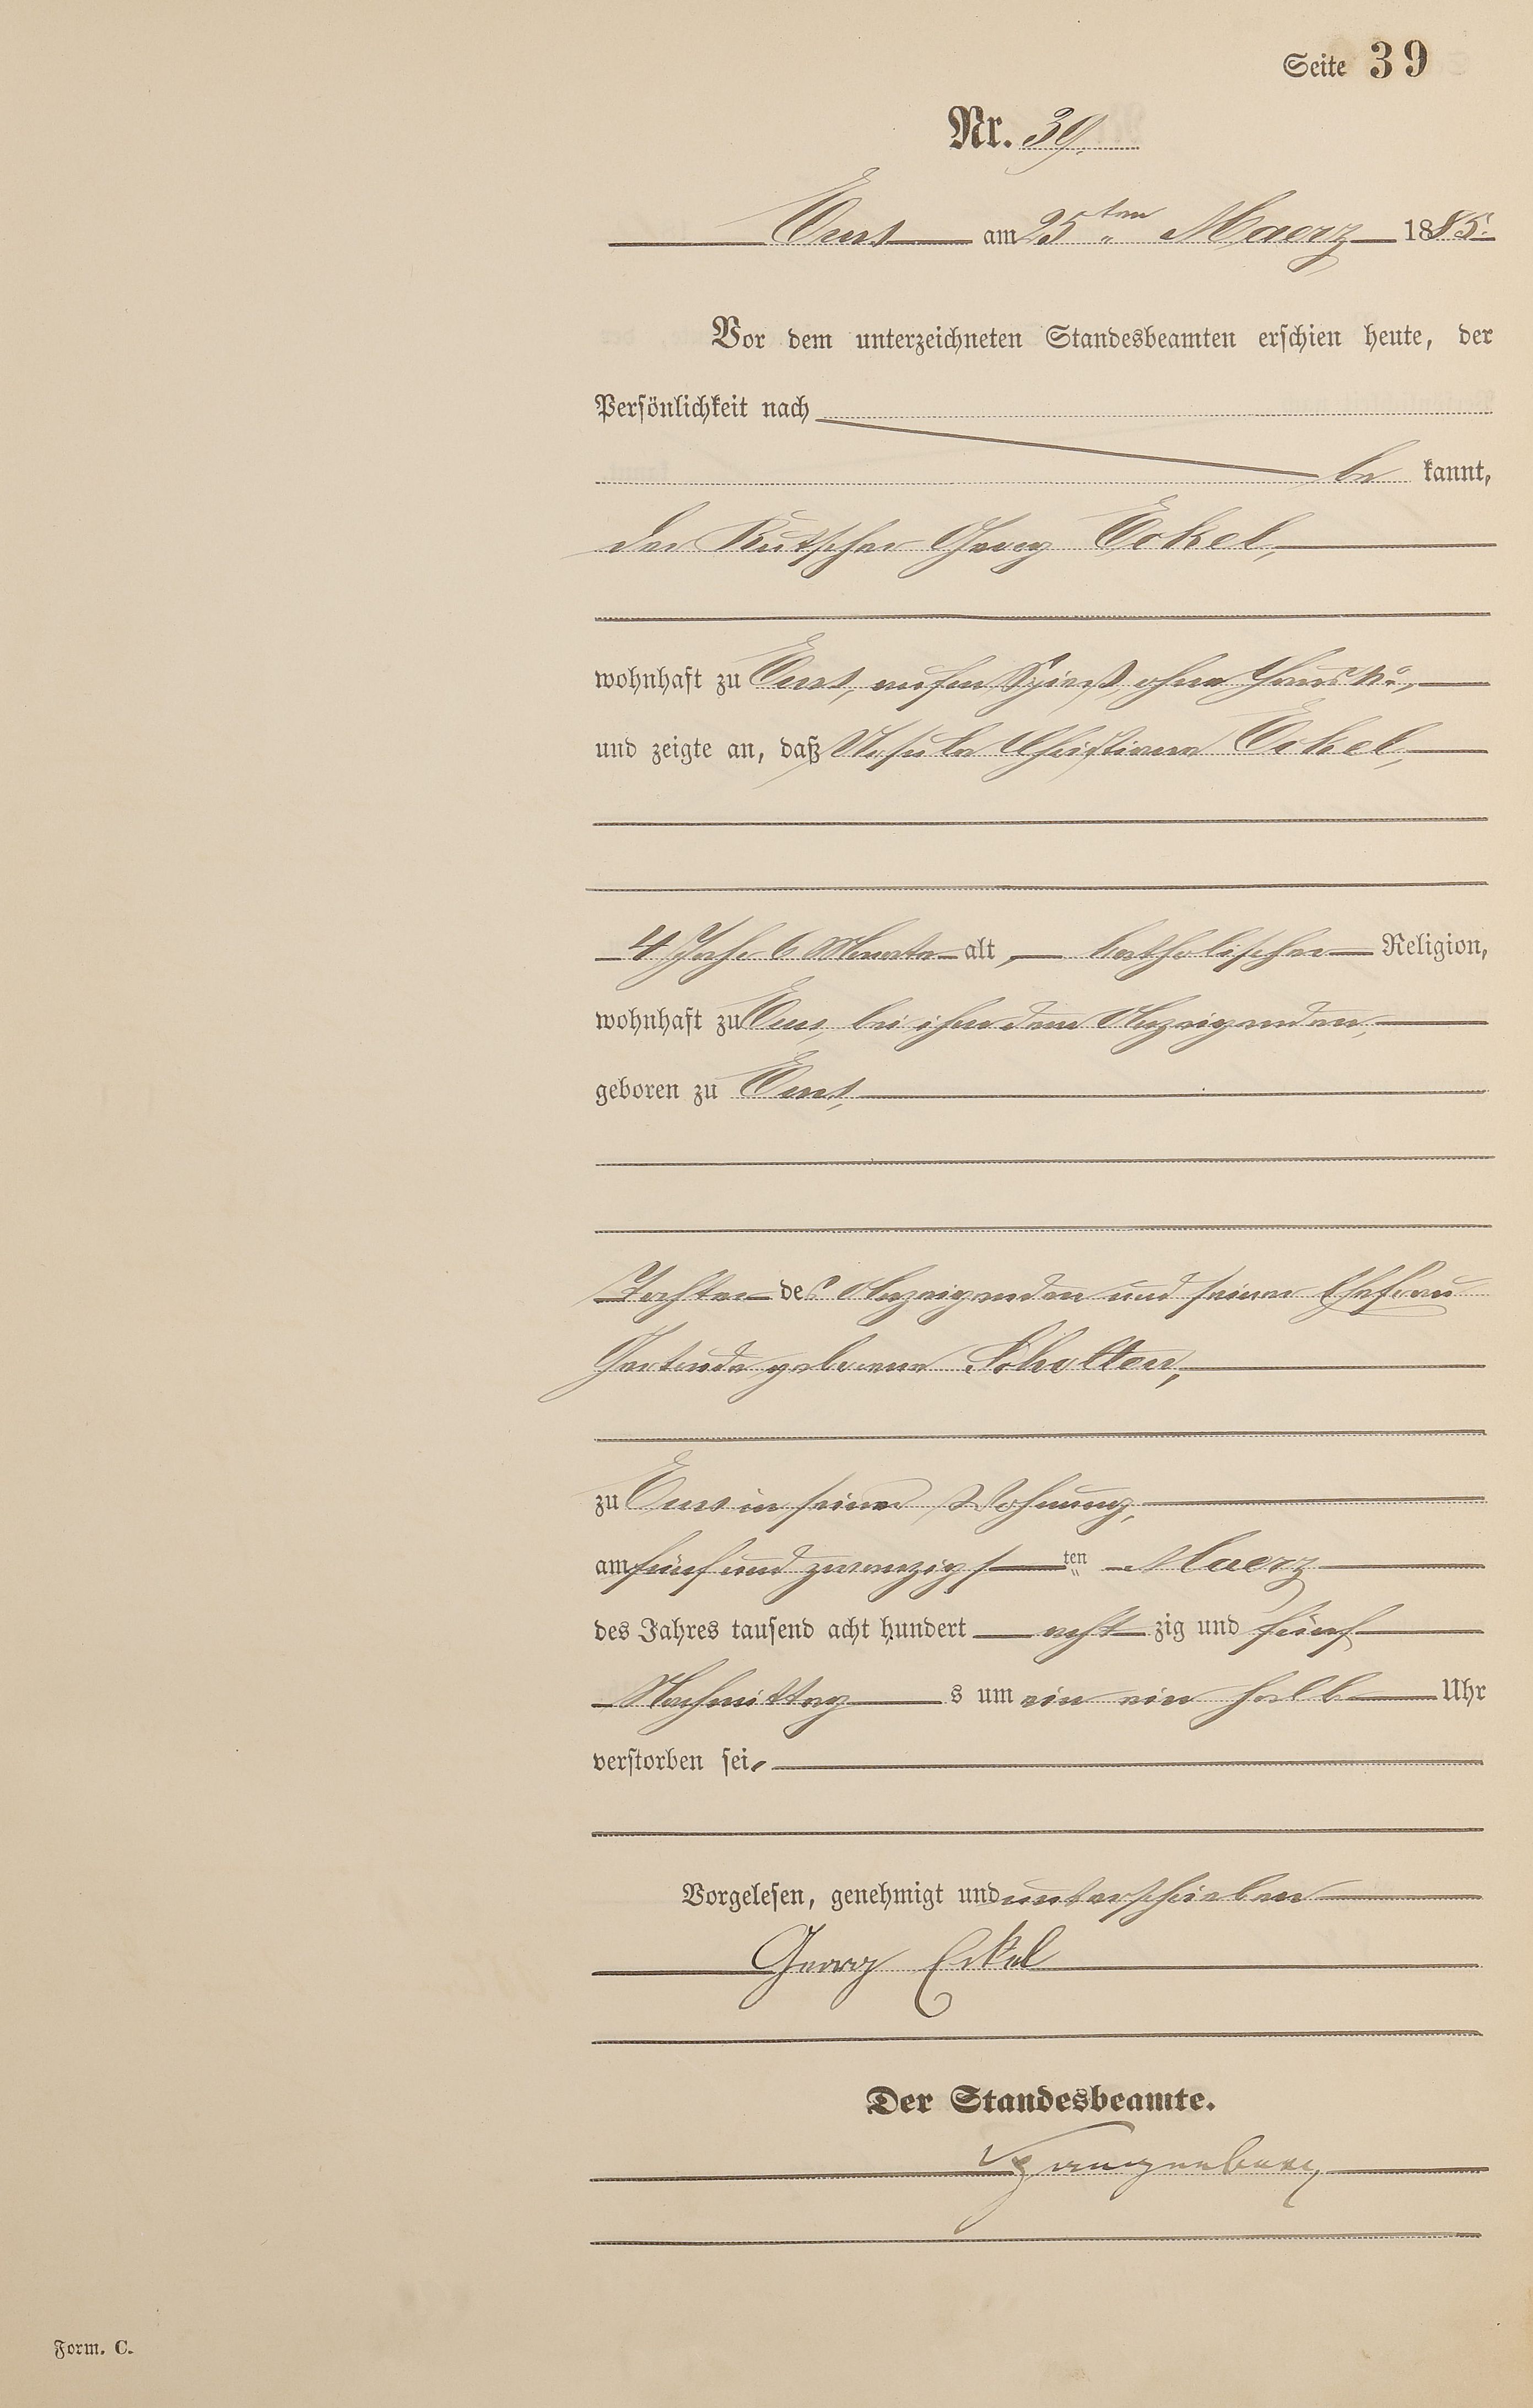 Seite 39
Nr. 39.
Ems am 25ten Maerz 1885.
Vor dem unterzeichneten Standesbeamten erschien heute, der
Persönlichkeit nach
be kannt,
der Kutscher Georg Eckel,
wohnhaft zu Ems, auf'm Spieß, ohne Haus No,
und zeigte an, daß Ursula Christiane Eckel,
4 Jahre 6 Monate alt, katholischer Religion,
wohnhaft zu Ems, bei ihm dem Anzeigenden,
geboren zu Ems,
Tochter des Anzeigenden und seiner Ehefrau
Gertrude geborene Scholtten,
zu Ems in seiner Wohnung,
am fünf und zwanzigsten Maerz
des Jahres tausend acht hundert acht zig und fünf
Nachmittag s um ein ein halb Uhr
verstorben sei,
Vorgelesen, genehmigt und unterschrieben
Georg Eckel
Der Standesbeamte.
Form. C.